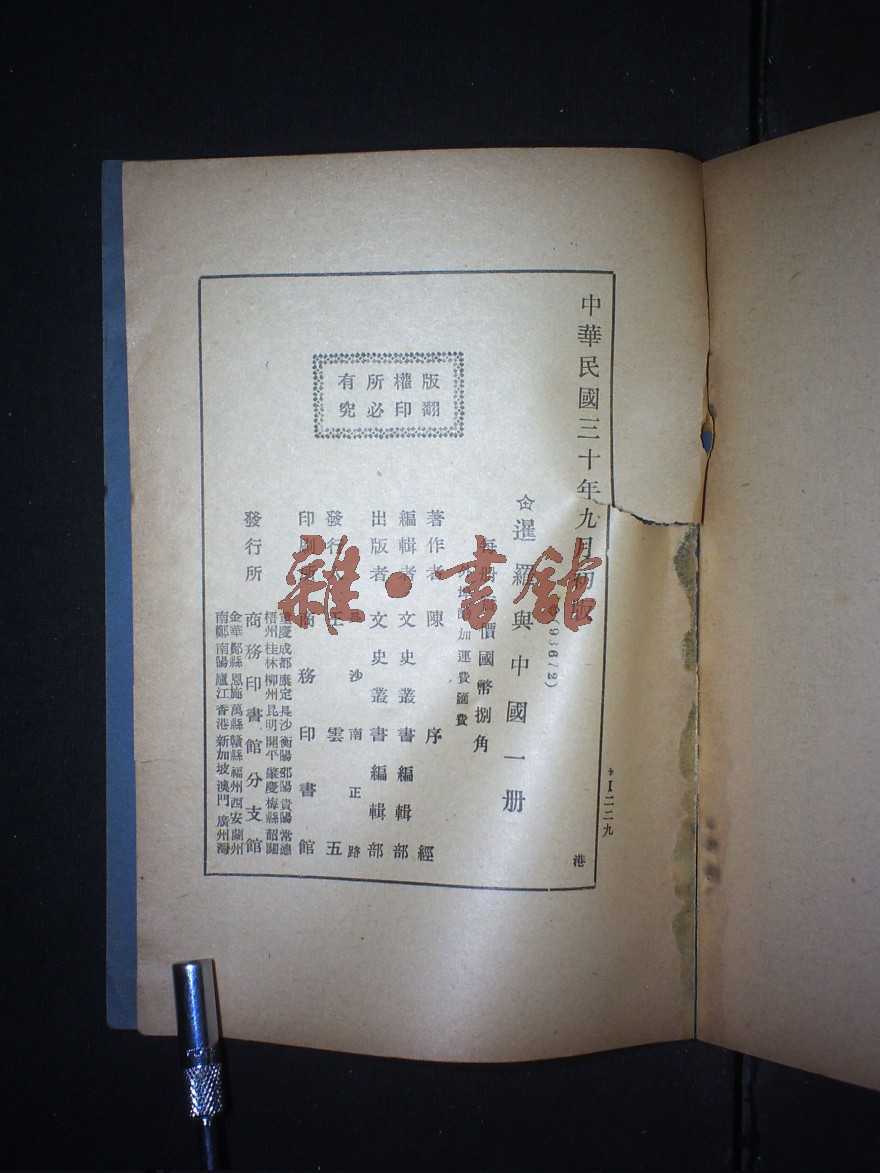 中華民國三十年九月初版
＊Ⅰ二二九
港
(93672)
暹羅與中國一册
每册 價國幣捌角
加運費匯費
著作者 陳序經
編輯者 文史叢書編輯部
出版者 文史叢書編輯部
長沙南正路
發行人 王雲五
印刷所 商務印書館
重慶成都康定長沙衡陽邵陽貴陽常德
梧州桂林柳州昆明開平肇慶梅縣韶關
發行所 商務印書館分支館
金華鄞縣恩施萬縣贛縣福州西安蘭州
南鄭南陽廬江香港新加坡澳門廣州灣
版權所有
翻印必究
雜·書館